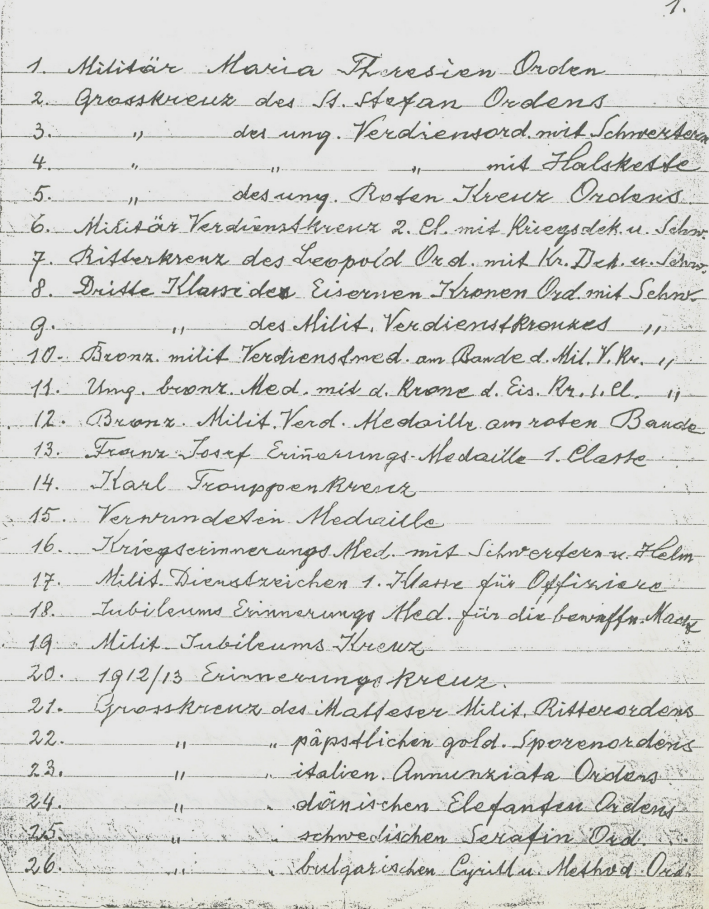 1.
1. Militär Maria Theresien Orden
2. Grosskreuz des St. Stefan Ordens
3. „ des ung. Verdiensord. mit Schwertern
4. „ „ „ mit Halskette
5. „ des ung. Roten Kreuz Ordens
6. Militär Verdienstkreuz 2. Cl. mit Kriegsdek. u. Schw.
7. Ritterkreuz des Leopold Ord. mit Kr. Dek. u. Schw.
8. Dritte Klasse des Eisernen Kronen Ord. mit Schw.
9. „ des Milit. Verdienstkreuzes „
10. Bronz. milit Verdienstmed. am Bande d. Mil. V. Kr. „
11. Ung. bronz. Med. mit d. Krone d. Eis. Kr. 1. Cl. „
12. Bronz. Milit. Verd. Medaille am roten Bande
13. Franz Josef Erin̄erungs-Medaille 1. Classe
14. Karl Trouppenkreuz
15. Verwundeten Medaille
16. Kriegserinnerungs Med. mit Schwertern u. Helm
17. Milit. Dienstzeichen 1. Klasse für Offiziere
18. Jubileums Erinnerungs Med. für die bewaffn. Macht
19 Milit. Jubileums Kreuz
20. 1912/13 Erinnerungskreuz.
21. Grosskreuz des Malteser Milit. Ritterordens
22. „ „ päpstlichen gold. Sporenordens
23. „ „ italien. Annunziata Ordens
24. „ „ dänischen Elefanten Ordens
25. „ „ schwedischen Serafin Ord.
26. „ „ bulgarischen Cyrill u. Method. Ord.